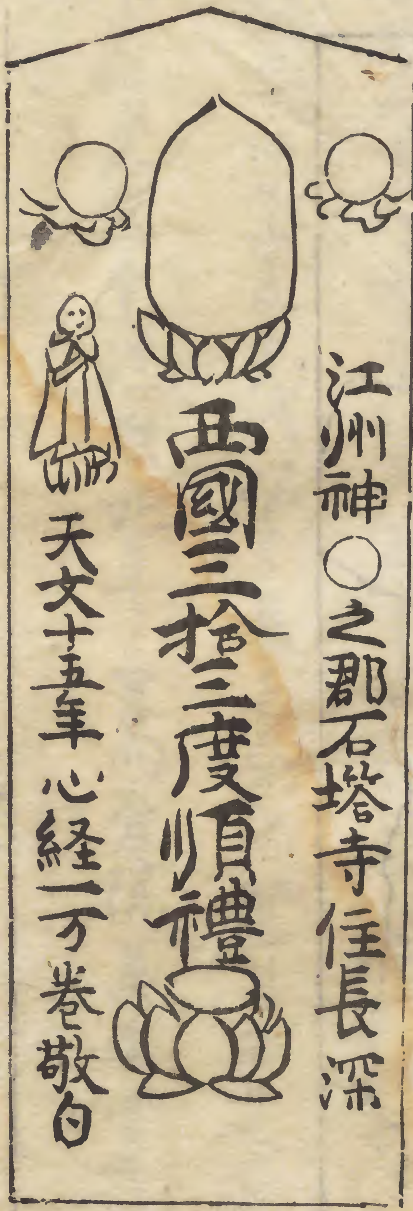 江州神○之郡石塔寺住長深
西國三拾三度順禮
天文十五年 心経一万巻敬白